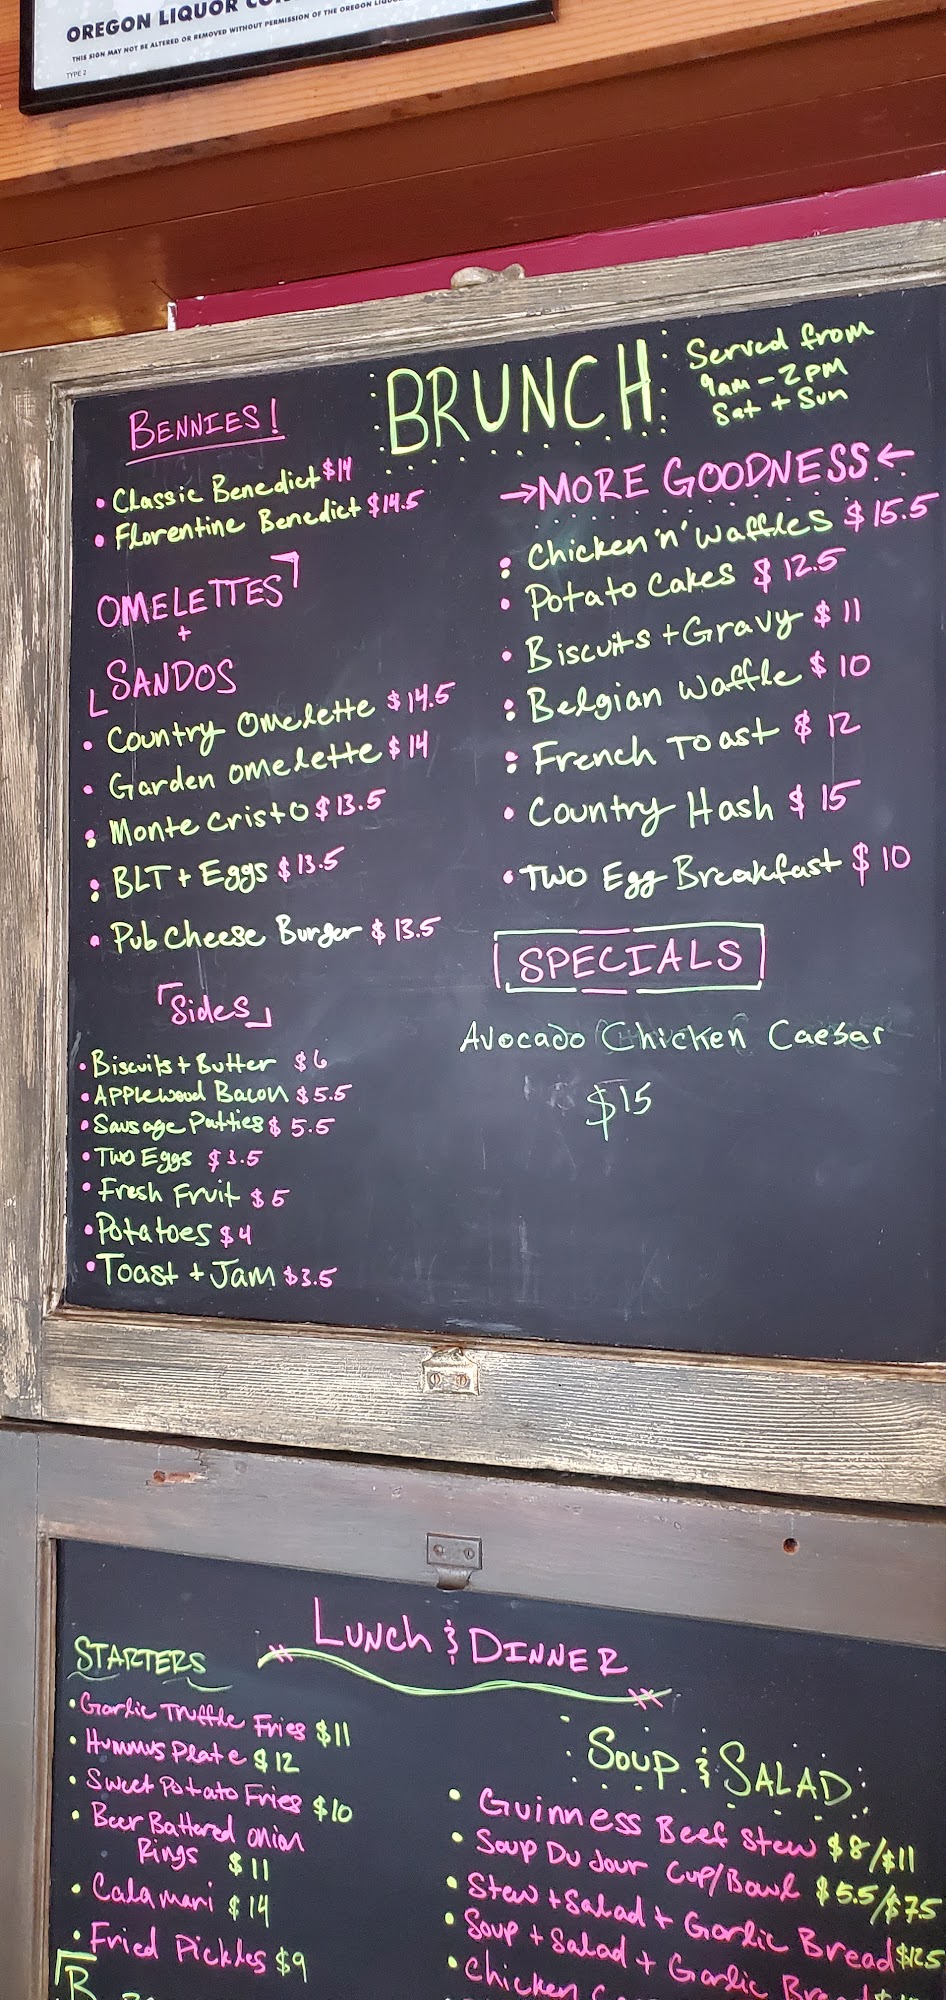 OREGON LIQUOR
THIS SIGN MAY NOT BE ALTERED OR REMOVED WITHOUT PERMISSION OF THE OREGON
TYPE 2
BRUNCH
Served from
9am - 2pm
Sat + Sun
BENNIES!
• Classic Benedict $14
• Florentine Benedict $14.5
OMELETTES
+
SANDOS
• Country Omelette $14.5
• Garden omelette $14
• Monte Cristo $13.5
• BLT + Eggs $13.5
• Pub Cheese Burger $13.5
Sides
• Biscuits + Butter $6
• Applewood Bacon $5.5
• Sausage Patties $5.5
• Two Eggs $3.5
• Fresh Fruit $5
• Potatoes $4
• Toast + Jam $3.5
→MORE GOODNESS←
• Chicken 'n' Waffles $15.5
• Potato Cakes $12.5
• Biscuits + Gravy $11
• Belgian Waffle $10
• French Toast $12
• Country Hash $15
• Two Egg Breakfast $10
SPECIALS
Avocado Chicken Caesar
$15
Lunch & DINNER
STARTERS
• Garlic Truffle Fries $11
• Hummus Plate $12
• Sweet Potato Fries $10
• Beer Battered onion
Rings $11
• Calamari $14
• Fried Pickles $9
Soup & SALAD
• Guinness Beef Stew $8/$11
• Soup Du Jour Cup/Bowl $5.5/$7.5
• Stew + Salad + Garlic Bread $12.5
• Soup + Salad + Garlic Bread
• Chicken